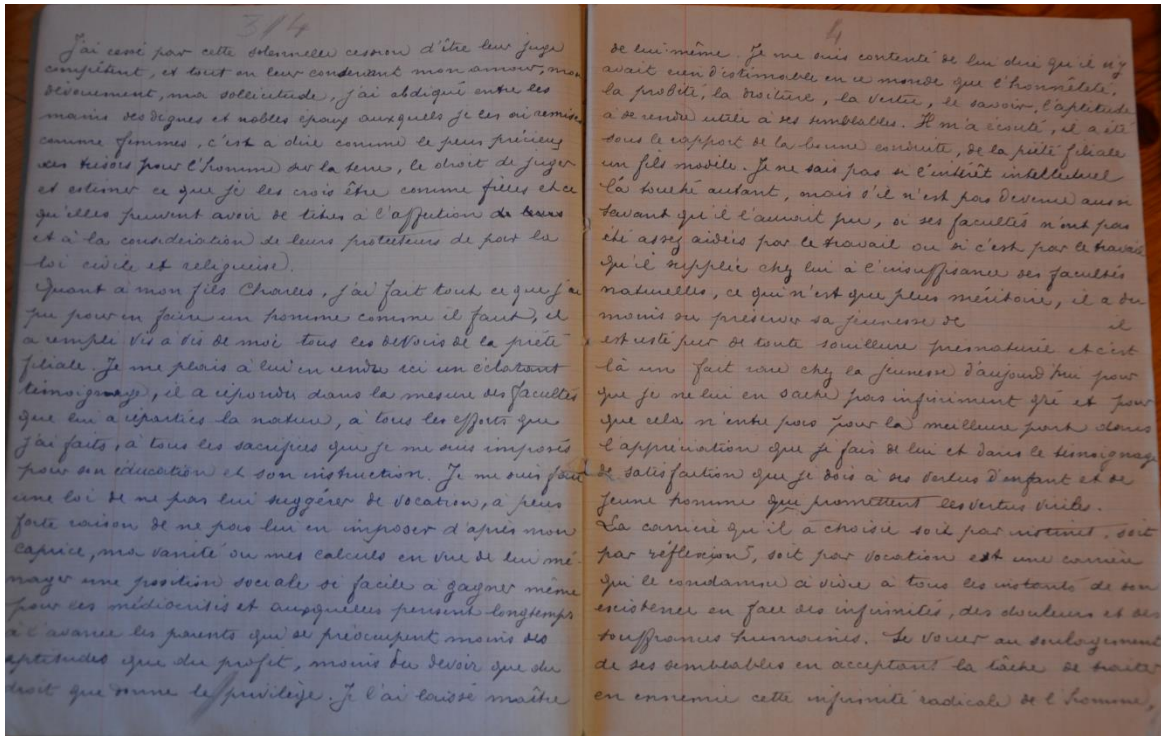 3/4
J'ai cessé par cette solennelle cession d'être leur juge
compétent, et tout en leur conservant mon amour, mon
dévouement, ma sollicitude, j'ai abdiqué entre les
mains des dignes et nobles époux auxquels je les ai remises
comme femmes, c'est a dire comme le plus précieux
des trésors pour l'homme sur la terre, le droit de juger
et estimer ce que je les crois être comme filles et ce
qu'elles peuvent avoir de titres à l'affection de leurs
et à la considération de leurs protecteurs de par la
loi civile et religieuse.
Quant à mon fils Charles, j'ai fait tout ce que j'ai
pu pour en faire un homme comme il faut, il
a rempli vis à vis de moi tous les devoirs de la piété
filiale. Je me plais à lui en rendre ici un éclatant
témoignage, il a répondu dans la mesure des facultés
que lui a réparties la nature, à tous les efforts que
j'ai faits, à tous les sacrifices que je me suis imposés
pour son éducation et son instruction. Je me suis fait
une loi de ne pas lui suggérer de vocation, a plus
forte raison de ne pas lui en imposer d'après mon
caprice, ma vanité ou mes calculs en vue de lui mé-
nager une position sociale si facile à gagner même
pour les médiocrités et auxquelles pensent longtemps
à l'avance les parents qui se préoccupent moins des
aptitudes que du profit, moins du devoir que du
droit que donne le privilège. Je l'ai laissé maître
4
de lui-même. Je me suis contenté de lui dire qu'il n'y
avait rien d'estimable en ce monde que l'honnêteté,
la probité, la droiture, la vertu, le savoir, l'aptitude
à se rendre utile à ses semblables. Il m'a écouté, il a été
sous le rapport de la bonne conduite, de la piété filiale
un fils modèle. Je ne sais pas si l'intérêt intellectuel
l'a touché autant, mais s'il n'est pas devenu aussi
savant qu'il l'aurait pu, si ses facultés n'ont pas
été assez aidées par le travail ou si c'est par le travail
qu'il supplée chez lui à l'insuffisance des facultés
naturelles, ce qui n'est que plus méritoire, il a du
moins su préserver sa jeunesse de il
est resté pur de toute souillure prématurée et c'est
là un fait rare chez la jeunesse d'aujourd'hui pour
que je ne lui en sache pas infiniment gré et pour
que cela n'entre pas pour la meilleure part dans
l'appréciation que je fais de lui et dans le témoignage
de satisfaction que je dois à ses vertus d'enfant et de
jeune homme qui promettent les vertus viriles.
La carrière qu'il a choisie soit par instinct, soit
par réflexion, soit par vocation est une carrière
qui le condamne à vivre à tous les instants de son
existence en face des infirmités, des douleurs et des
souffrances humaines. Se vouer au soulagement
de ses semblables en acceptant la tâche de traiter
en ennemie cette infirmité radicale de l'homme,